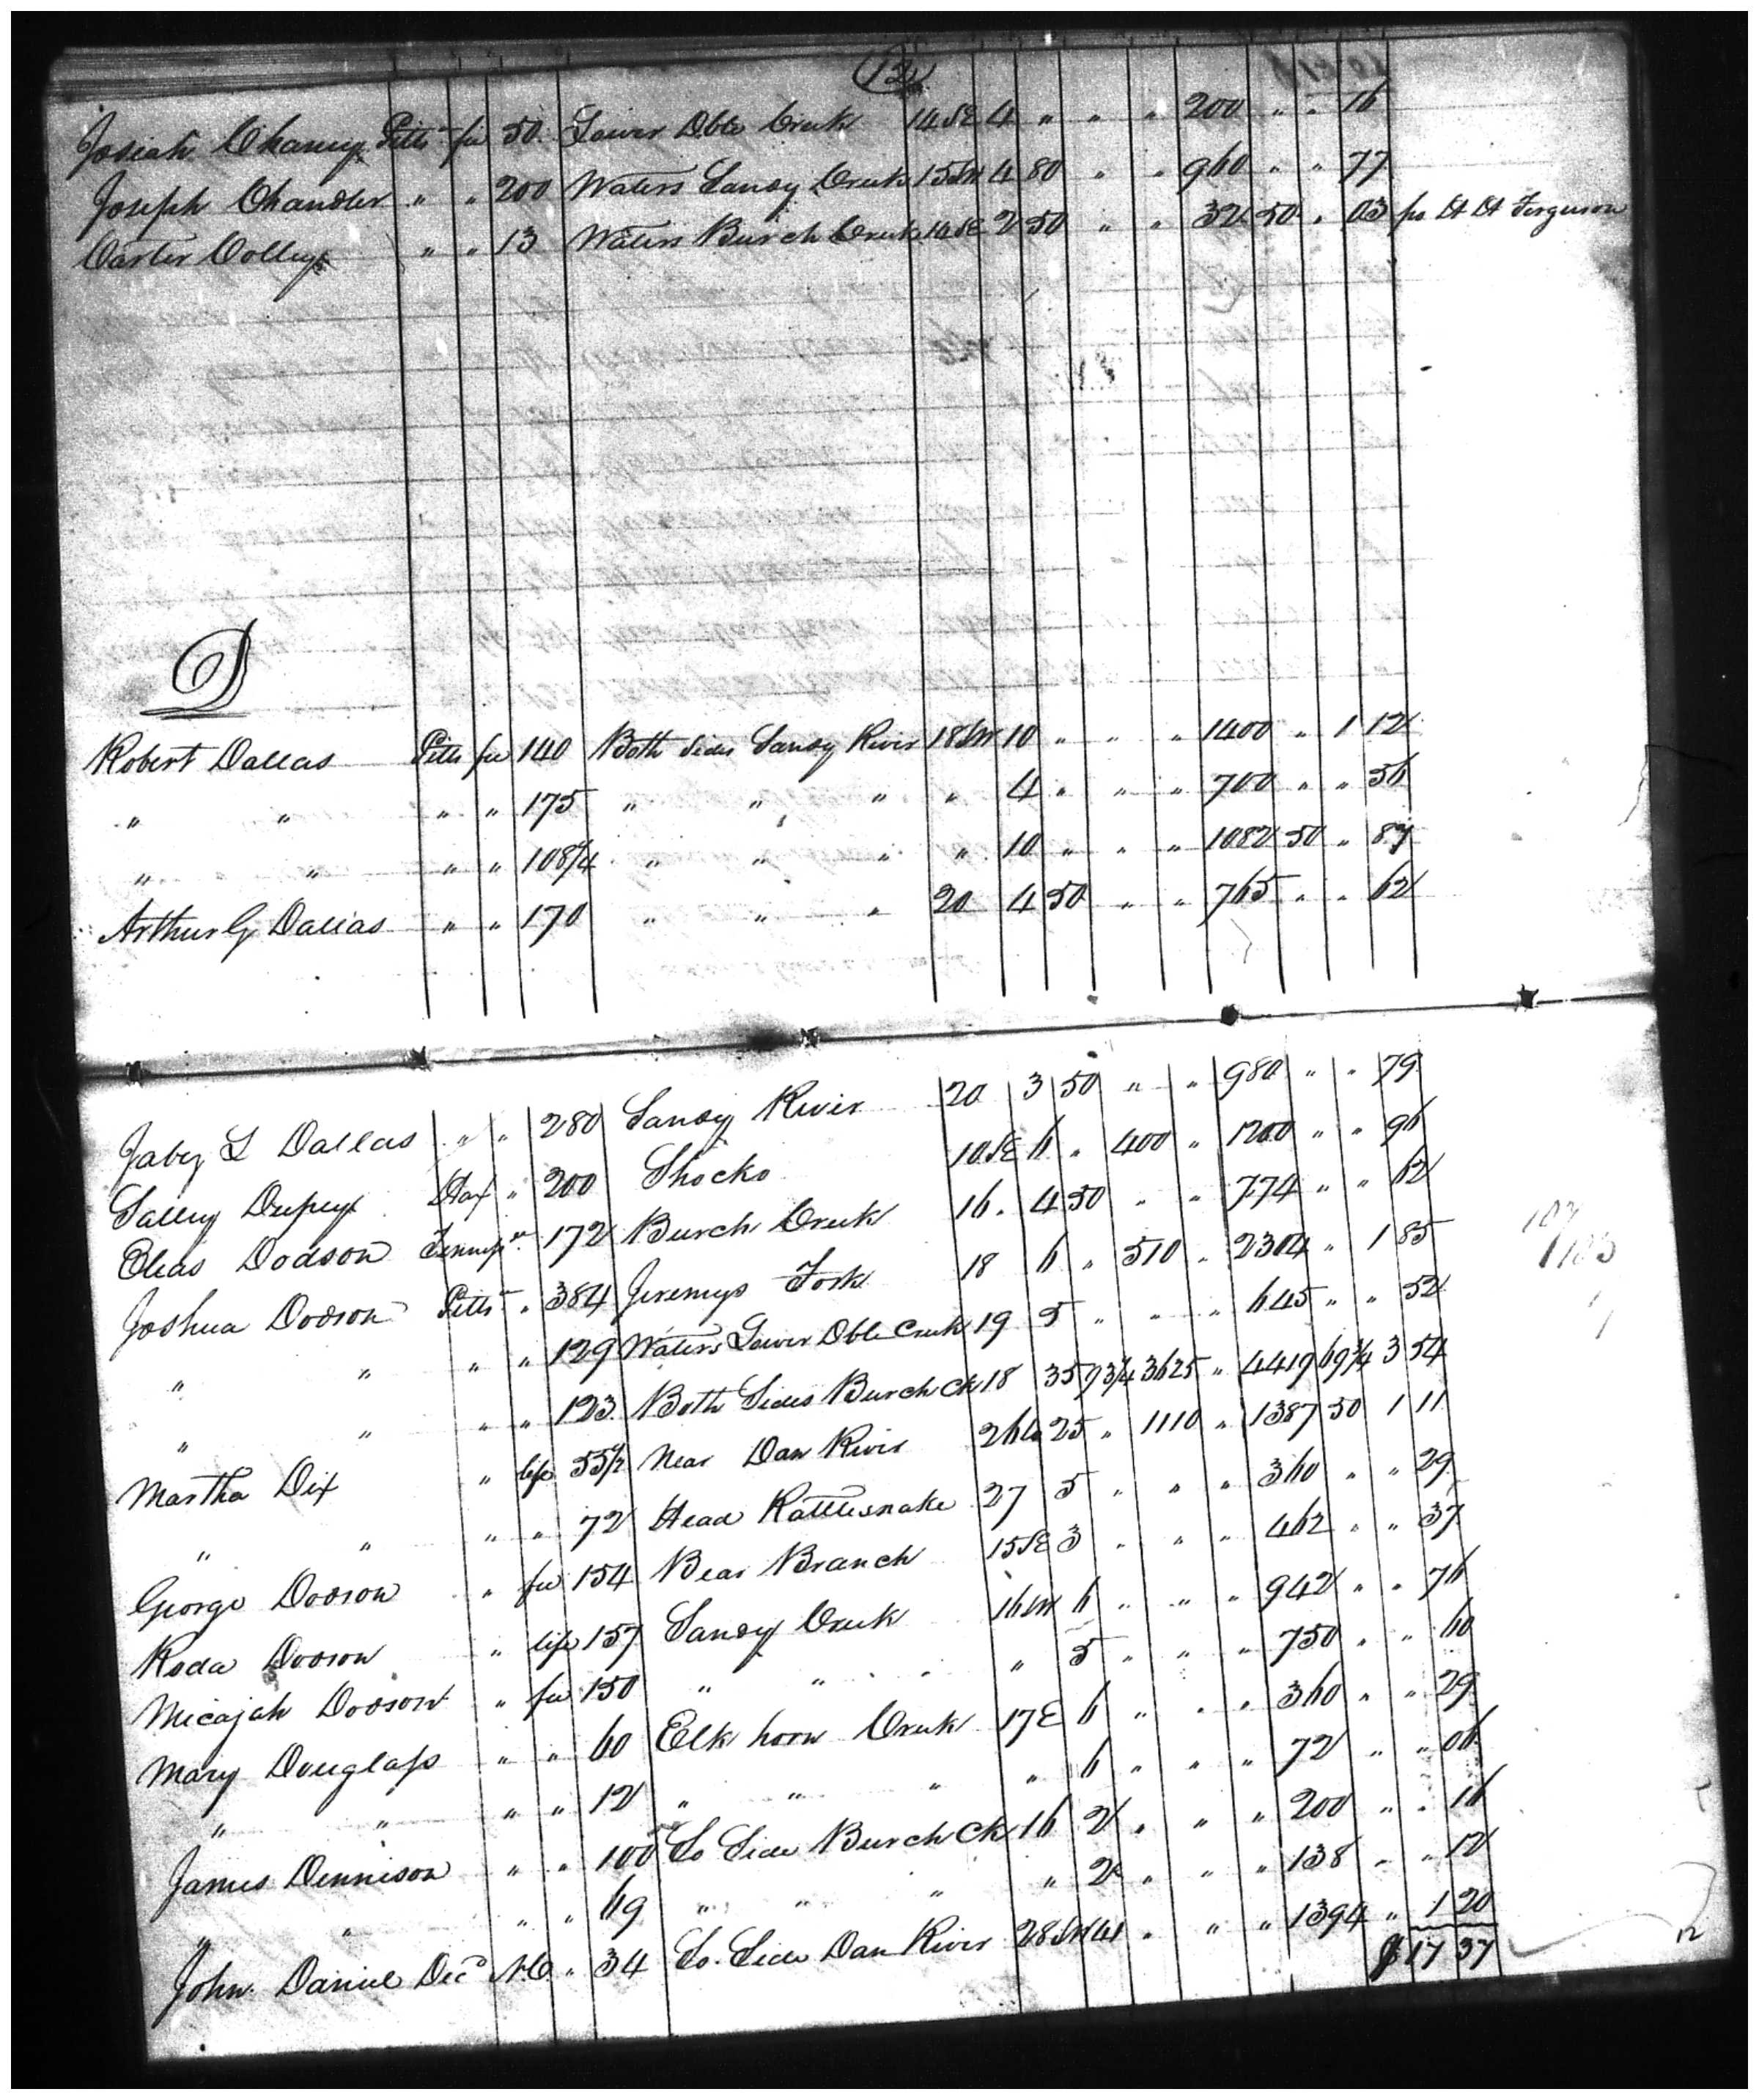 12
Josiah Chaney Pitts fee 50 Lower Dble Creek 14 SE 4 " " " 200 " " 16
Joseph Chandler " " 200 Waters Sandy Creek 15 SW 4 80 " " 960 " " 77
Carter Colley " " 13 Waters Burch Creek 14 SE 2 50 " " 32 50 " 03 per Ferguson
D
Robert Dallas Pitts fee 140 Both Sides Sandy River 18 SW 10 " " " 1400 " 1 12
" " " " 175 " " " " 4 " " " 700 " " 56
" " " " 108 1/4 " " " " 10 " " " 1082 50 " 87
Arthur G Dallas " " 170 " " " 20 4 50 " " 765 " " 62
Jabez S Dallas " " 280 Sandy River 20 3 50 " " 980 " " 79
Salley Dupey Hax " 200 Shocko 10 SE 6 " 400 " 1200 " " 96
Elias Dodson " 172 Burch Creek 16 " 4 50 " " 774 " " 62
Joshua Dodson Pitts " 384 Jeremys Fork 18 6 " 510 " 2304 " 1 85
" " " " 129 Waters Lower Dble Creek 19 5 " " " 645 " " 52
" " " " 123 Both Sides Burch Ck 18 35 93 3/4 3625 " 4419 69 3/4 3 54
Martha Dix " life 55 1/2 Near Dan River 26 25 " 1110 " 1387 50 1 11
" " " " 72 Head Rattlesnake 27 5 " " " 360 " " 29
George Dodson " fee 154 Bear Branch 15 SE 3 " " " 462 " " 37
Roda Dodson " life 157 Sandy Creek 16 SW 6 " " " 942 " " 76
Micajah Dodson " fee 150 " " " 5 " " " 750 " " 60
Mary Douglass " " 60 Elk horn Creek 17 E 6 " " " 360 " " 29
" " " " 12 " " " " 6 " " " 72 " " 06
James Dennison " " 100 So Side Burch Ck 16 2 " " " 200 " " 16
" " " " 69 " " " " 2 " " " 138 " " 12
John Daniel Decd N.C. " 34 So. Side Dan River 28 SW 41 " " " 1394 " 1 20
$17 37
12